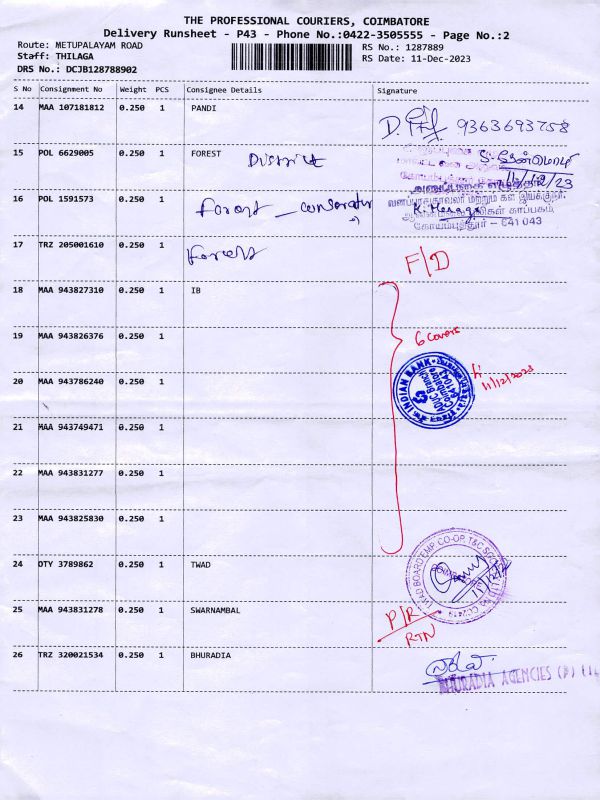 THE PROFESSIONAL COURIERS, COIMBATORE
Delivery Runsheet - P43 - Phone No.:0422-3505555 - Page No.:2
Route: METUPALAYAM ROAD RS No.: 1287889
Staff: THILAGA RS Date: 11-Dec-2023
DRS No.: DCJB128788902
S No Consignment No Weight PCS Consignee Details Signature
14 MAA 107181812 0.250 1 PANDI
9363693758
15 POL 6629005 0.250 1 FOREST District
11/12/23
16 POL 1591573 0.250 1 Forest - conservator
வனப்பாதுகாவலர் மற்றும் கள இயக்குநர்,
ஆனைமலை புலிகள் காப்பகம்,
கோயம்புத்தூர் - 641 043
17 TRZ 205001610 0.250 1 Forest
F/D
18 MAA 943827310 0.250 1 IB
19 MAA 943826376 0.250 1
6 covers
11/12/2023
INDIAN BANK
ADVC Branch
Coimbatore
20 MAA 943786240 0.250 1
21 MAA 943749471 0.250 1
22 MAA 943831277 0.250 1
23 MAA 943825830 0.250 1
24 OTY 3789862 0.250 1 TWAD
TWAD BOARD EMP. CO-OP. T&C SOC
25 MAA 943831278 0.250 1 SWARNAMBAL
P/R
RTN
26 TRZ 320021534 0.250 1 BHURADIA
BHURADIA AGENCIES (P)